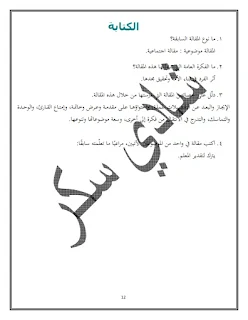 الكتابة
١. ما نوع المقالة السابقة؟
المقالة موضوعية : مقالة اجتماعية.
٢. ما الفكرة العامة هذه المقالة؟
أثر الفرد في بناء الأمة وتحقيق مجدها.
٣. دلّل على المقالة التي درستها من خلال هذه المقالة.
الإيجاز والبعد عن على مقدمة وعرض وخاتمة، وإمتاع القارئ، والوحدة
والتماسك، والتدرج في الانتقال من فكرة إلى أخرى، وسعة موضوعاتها وتنوعها.
٤. اكتب مقالة في واحد من الآتيين، مراعيًا ما تعلمته سابقًا.
يترك لتقدير المعلم.
شادي سكر
12